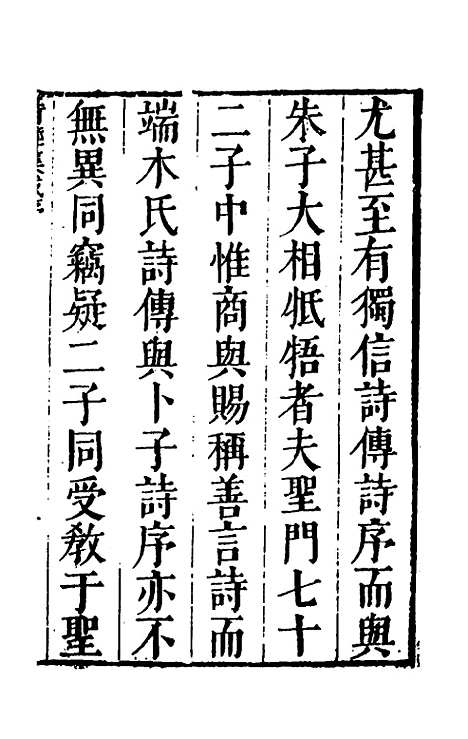 尤甚至有獨信詩傳詩序而與
朱子大相牴牾者夫聖門七十
二子中惟商與賜稱善言詩而
端木氏詩傳與卜子詩序亦不
無異同竊疑二子同受敎于聖